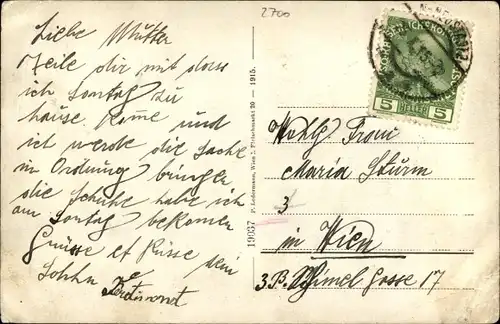 2700
Liebe Mutter
Teile dir mit dass
ich Sontag zu
hause kome und
ich werde die Sache
in Ordnung bringen
die Schuhe habe ich
am Sontag bekomen
Grüsse et Küsse dein
Sohn
Ferdinand
19037 P. Ledermann, Wien I. Fleischmarkt 20 — 1915.
5 HELLER 5
Wohlg. Frau
Maria Sturm
3
in Wien
3.B. Schimel Gosse 17